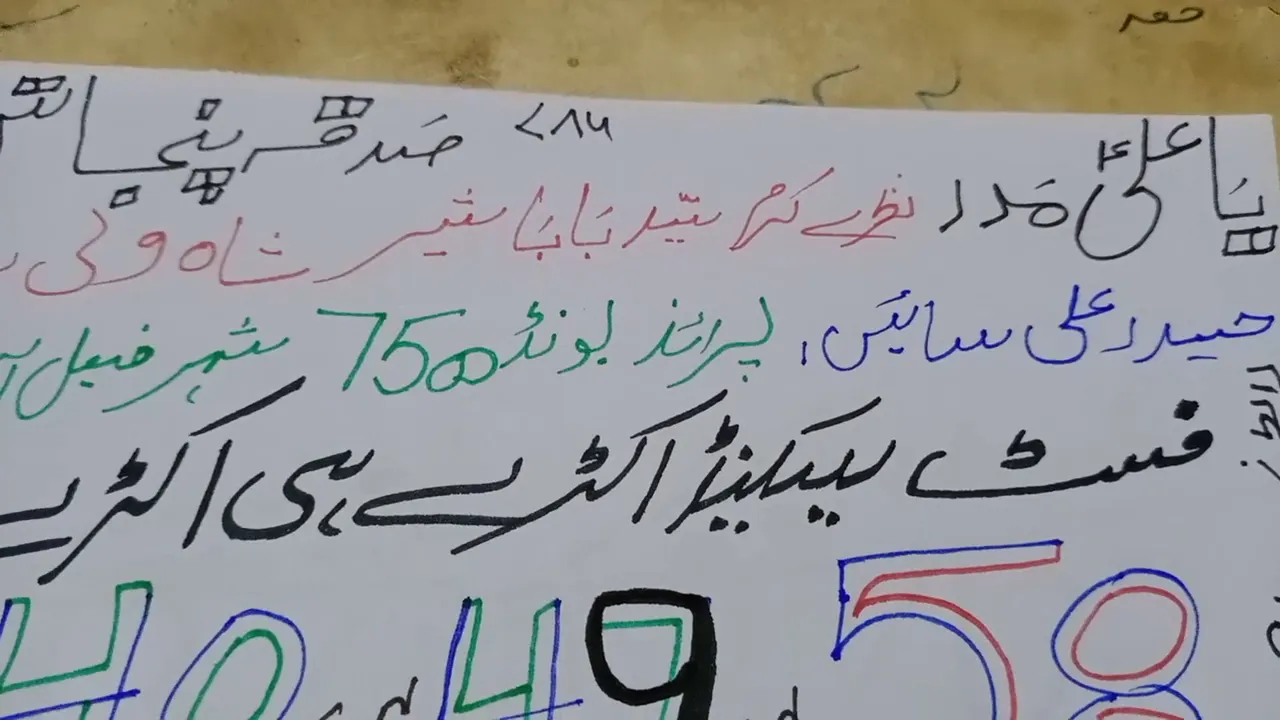 ۷۸۶ صدقہ پنجاتن
یا علیؑ مدد نظرے کرم سیّد بابا شیر شاہ ولی
حیدر علی سائیں، پرائز بونڈ 7500 شہر فیصل آ
فسٹ سیکنیڈ اکڑے ہی اکڑے
40 49 58